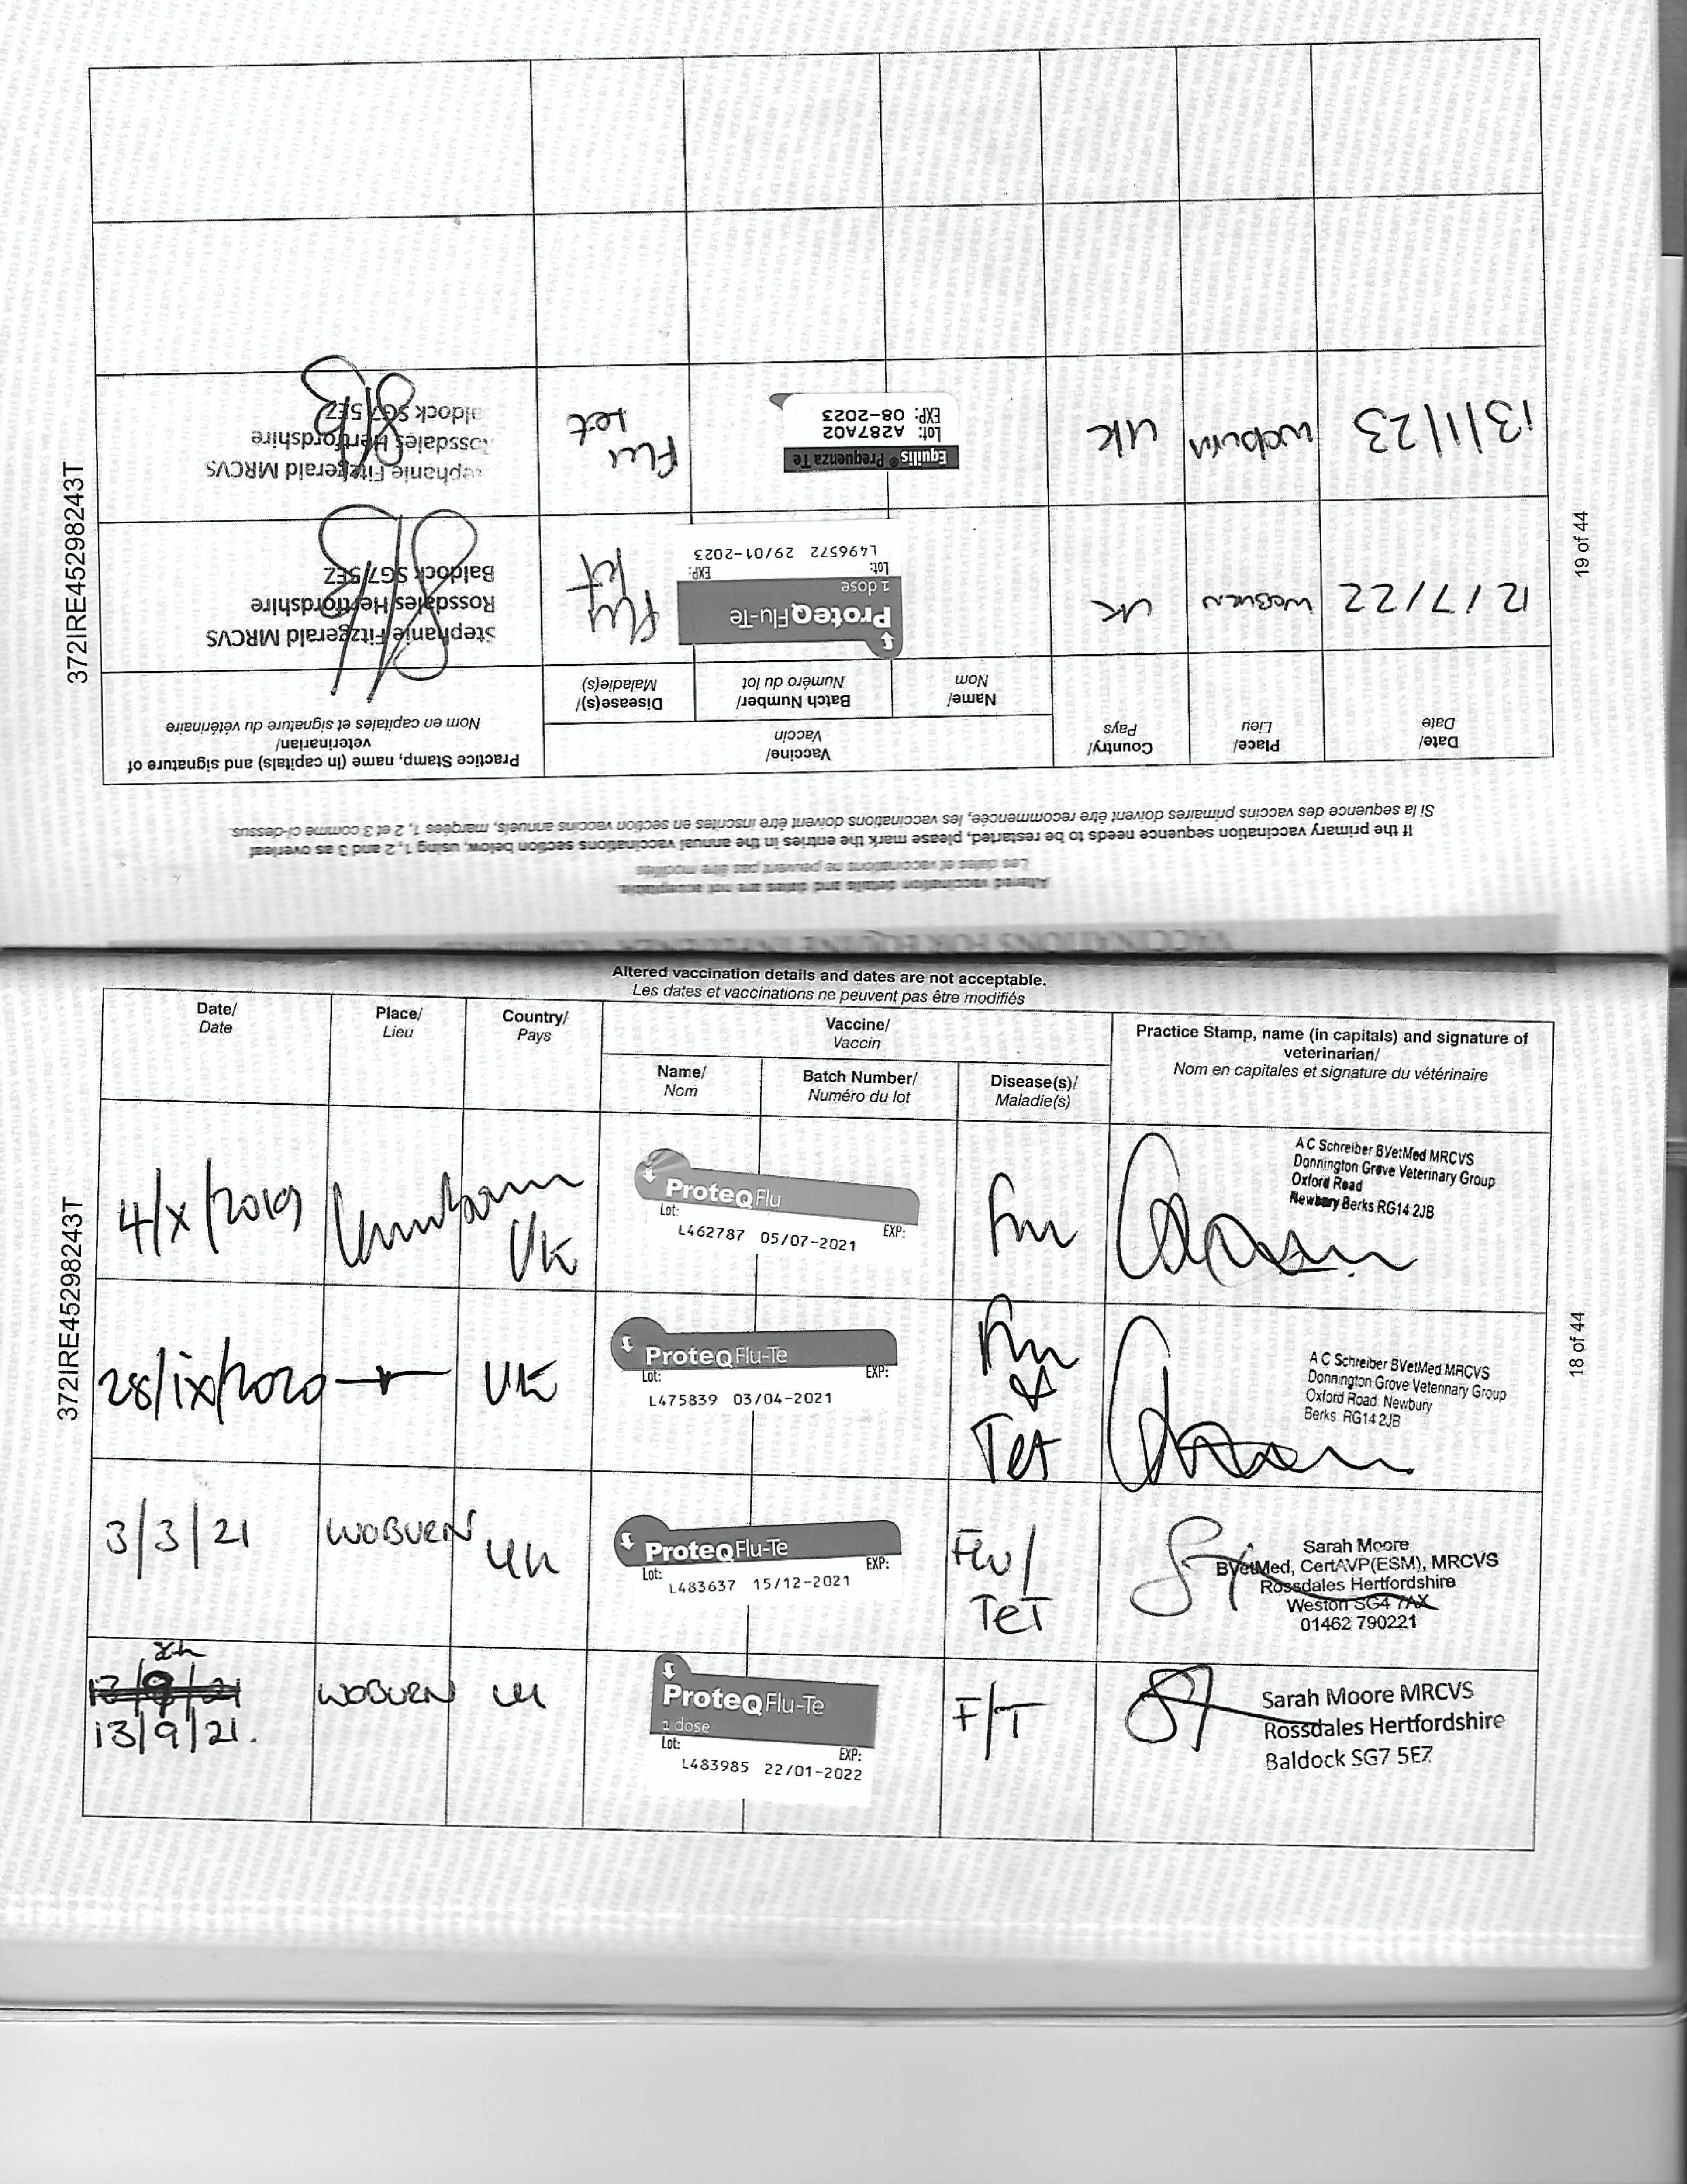 372IRE45298243T
19 of 44
VACCINATIONS FOR EQUINE INFLUENZA - CONTINUED
Altered vaccination details and dates are not acceptable.
Les dates et vaccinations ne peuvent pas être modifiés
If the primary vaccination sequence needs to be restarted, please mark the entries in the annual vaccinations section below, using 1, 2 and 3 as overleaf
Si la sequence des vaccins primaires doivent être recommencée, les vaccinations doivent être inscrites en section vaccins annuels, marquées 1, 2 et 3 comme ci-dessus.
Date/
Date
Place/
Lieu
Country/
Pays
Vaccine/
Vaccin
Name/
Nom
Batch Number/
Numéro du lot
Disease(s)/
Maladie(s)
Practice Stamp, name (in capitals) and signature of
veterinarian/
Nom en capitales et signature du vétérinaire
12/7/22
WOBURN
UK
ProteqFlu-Te
1 dose
Lot: EXP:
L496572 29/01-2023
Flu
tet
Stephanie Fitzgerald MRCVS
Rossdales Hertfordshire
Baldock SG7 5EZ
13/1/23
Woburn
UK
Equilis® Prequenza Te
Lot: A287A02
EXP: 08-2023
Flu
tet
ephanie Fitzgerald MRCVS
Rossdales Hertfordshire
aldock SG7 5EZ
Altered vaccination details and dates are not acceptable.
Les dates et vaccinations ne peuvent pas être modifiés
372IRE45298243T
18 of 44
Date/
Date
Place/
Lieu
Country/
Pays
Vaccine/
Vaccin
Name/
Nom
Batch Number/
Numéro du lot
Disease(s)/
Maladie(s)
Practice Stamp, name (in capitals) and signature of
veterinarian/
Nom en capitales et signature du vétérinaire
4/X/2019
UK
ProteqFlu
Lot: EXP:
L462787 05/07-2021
Flu
A C Schreiber BVetMed MRCVS
Donnington Grove Veterinary Group
Oxford Road
Newbury Berks RG14 2JB
28/ix/2020
UK
ProteqFlu-Te
Lot: EXP:
L475839 03/04-2021
Flu
&
Tet
A C Schreiber BVetMed MRCVS
Donnington Grove Veterinary Group
Oxford Road Newbury
Berks RG14 2JB
3/3/21
WOBURN
UK
ProteqFlu-Te
Lot: EXP:
L483637 15/12-2021
Flu/
TeT
Sarah Moore
BVetMed, CertAVP(ESM), MRCVS
Rossdales Hertfordshire
Weston SG4 7AX
01462 790221
13/9/21
13/9/21.
WOBURN
UK
ProteqFlu-Te
1 dose
Lot: EXP:
L483985 22/01-2022
F/T
Sarah Moore MRCVS
Rossdales Hertfordshire
Baldock SG7 5EZ